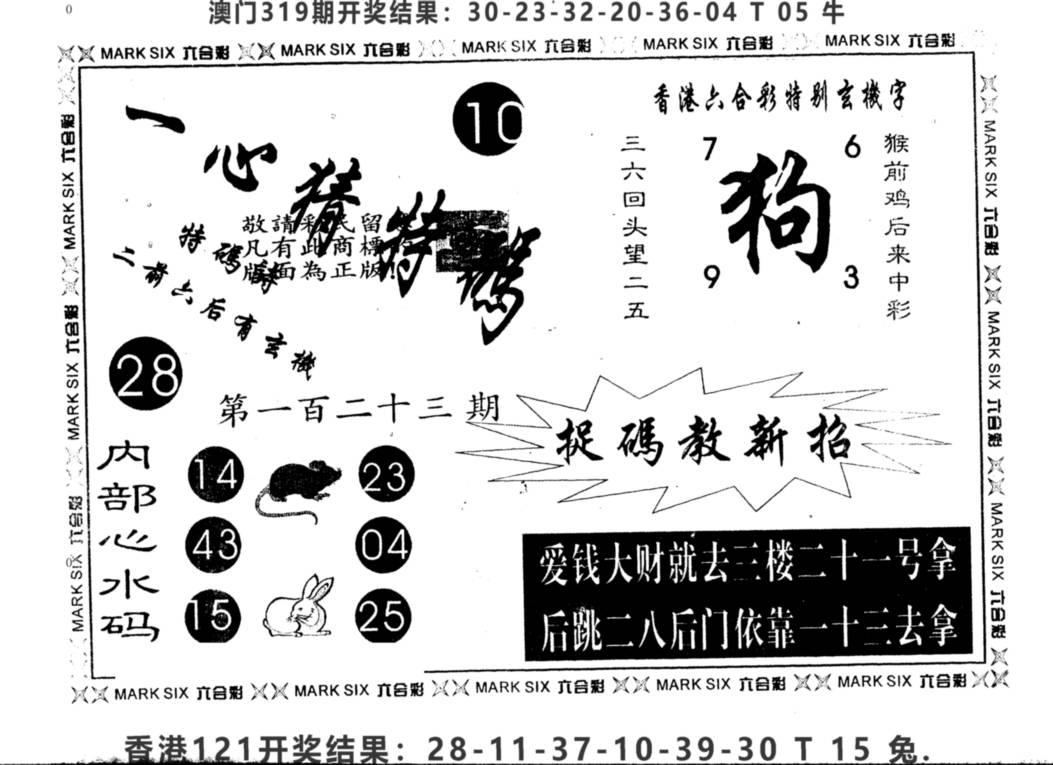 0
澳门319期开奖结果：30-23-32-20-36-04 T 05 牛
MARK SIX 六合彩 MARK SIX 六合彩 MARK SIX 六合彩 MARK SIX 六合彩 MARK SIX 六合彩
一心猜特碼
10
香港六合彩特别玄機字
三六回头望二五
7 6
狗
9 3
猴前鸡后来中彩
敬請彩民留
凡有此商標
版面為正版!
特碼詩
二前六后有玄機
28
第一百二十三期
捉碼教新招
内部心水码
14 23
43 04
15 25
爱钱大财就去三楼二十一号拿
后跳二八后门依靠一十三去拿
MARK SIX 六合彩 MARK SIX 六合彩 MARK SIX 六合彩
MARK SIX 六合彩 MARK SIX 六合彩 MARK SIX 六合彩
MARK SIX 六合彩 MARK SIX 六合彩 MARK SIX 六合彩 MARK SIX 六合彩 MARK SIX 六合彩
香港121开奖结果：28-11-37-10-39-30 T 15 兔.